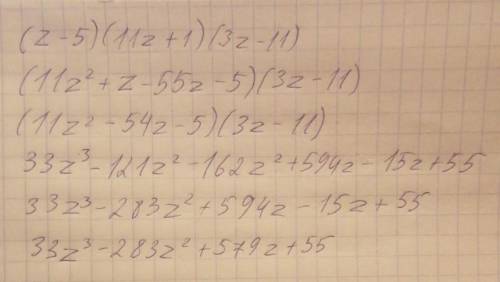 (z-5)(11z+1)(3z-11)
(11z²+z-55z-5)(3z-11)
(11z²-54z-5)(3z-11)
33z³-121z²-162z²+594z-15z+55
33z³-283z²+594z-15z+55
33z³-283z²+579z+55